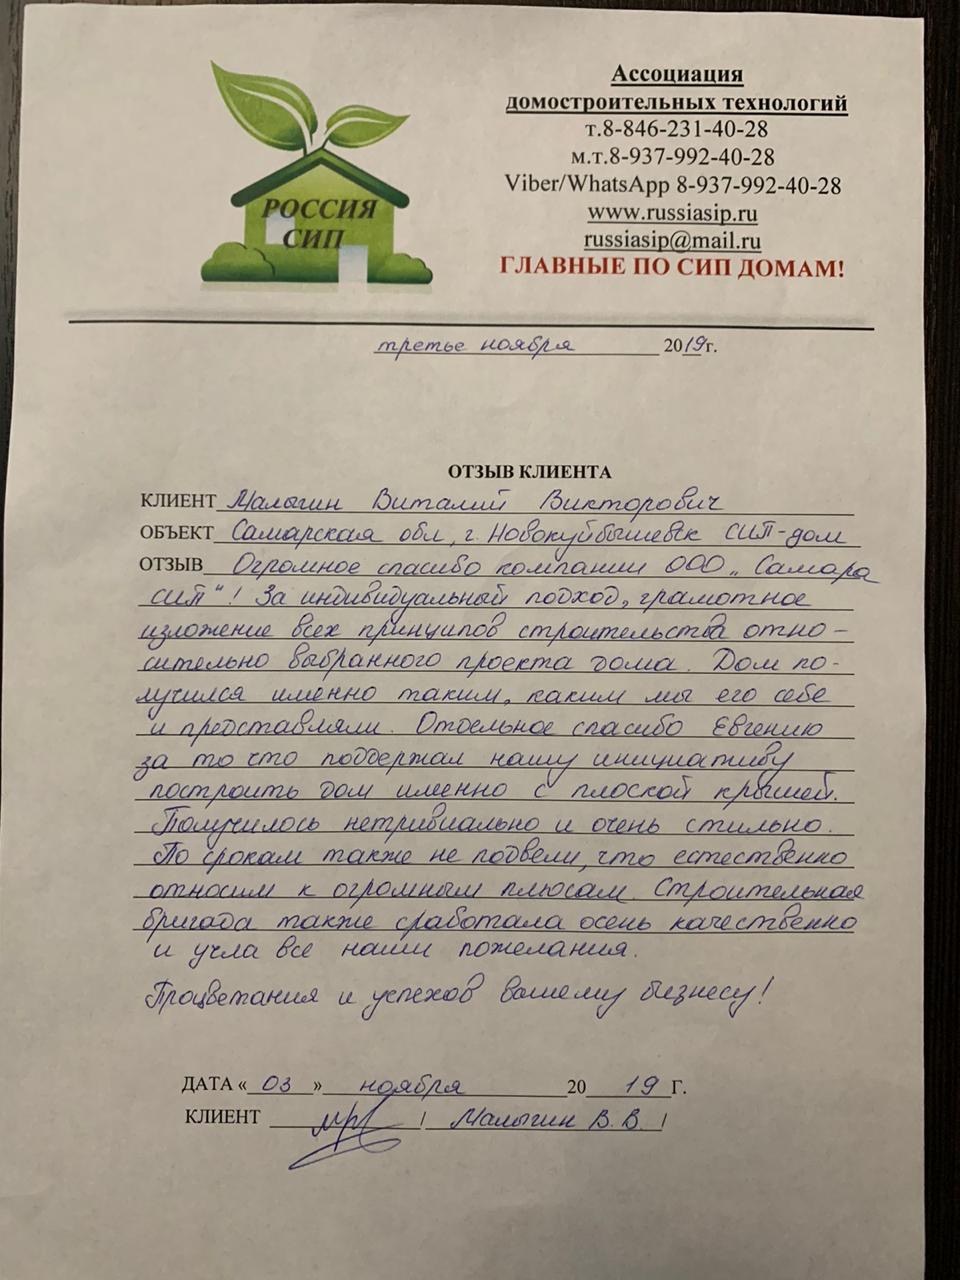 Ассоциация
домостроительных технологий
т.8-846-231-40-28
м.т.8-937-992-40-28
Viber/WhatsApp 8-937-992-40-28
www.russiasip.ru
russiasip@mail.ru
ГЛАВНЫЕ ПО СИП ДОМАМ!
РОССИЯ
СИП
третье ноября 2019г.
ОТЗЫВ КЛИЕНТА
КЛИЕНТ Малыгин Виталий Викторович
ОБЪЕКТ Самарская обл, г. Новокуйбышевск СИП-дом
ОТЗЫВ Огромное спасибо компании ООО „Самара
СИП"! За индивидуальный подход, грамотное
изложение всех принципов строительства отно-
сительно выбранного проекта дома. Дом по-
лучился именно таким, каким мы его себе
и представляли. Отдельное спасибо Евгению
за то что поддержал нашу инициативу
построить дом именно с плоской крышей.
Получилось нетривиально и очень стильно.
По срокам также не подвели, что естественно
относим к огромным плюсам. Строительная
бригада также сработала очень качественно
и учла все наши пожелания.
Процветания и успехов вашему бизнесу!
ДАТА «03» ноября 2019 Г.
КЛИЕНТ / Малыгин В.В. /